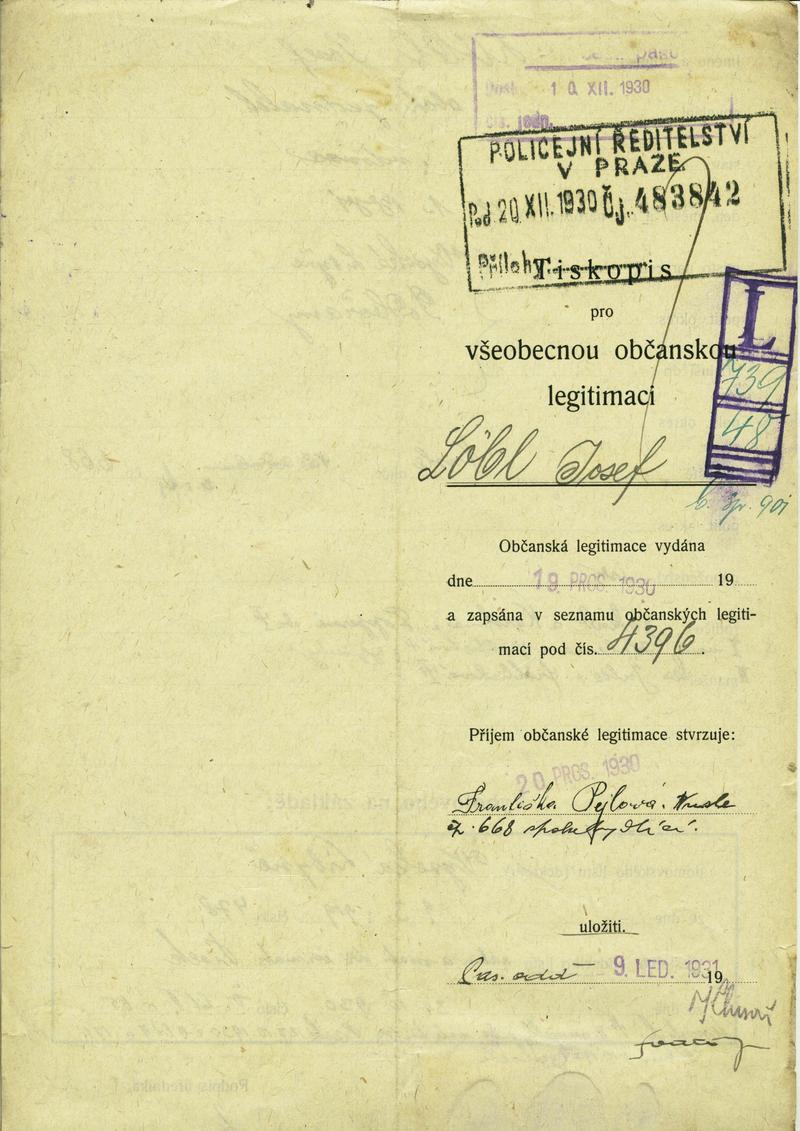 10. XII. 1930
čís. jedn.
POLICEJNÍ ŘEDITELSTVÍ
V PRAZE
Pod 20 XII. 1930 Čj. 483842
Příloh
Tiskopis
pro
všeobecnou občanskou
legitimaci
L
739
48
Löbl Josef
Občanská legitimace vydána
dne 19. PROS. 1930 19
a zapsána v seznamu občanských legiti-
mací pod čís. 4396.
Příjem občanské legitimace stvrzuje:
20 PROS. 1930
Františka Pejlová. Nusle
čp. 668 spolubydlící.
uložiti.
9. LED. 1931 19